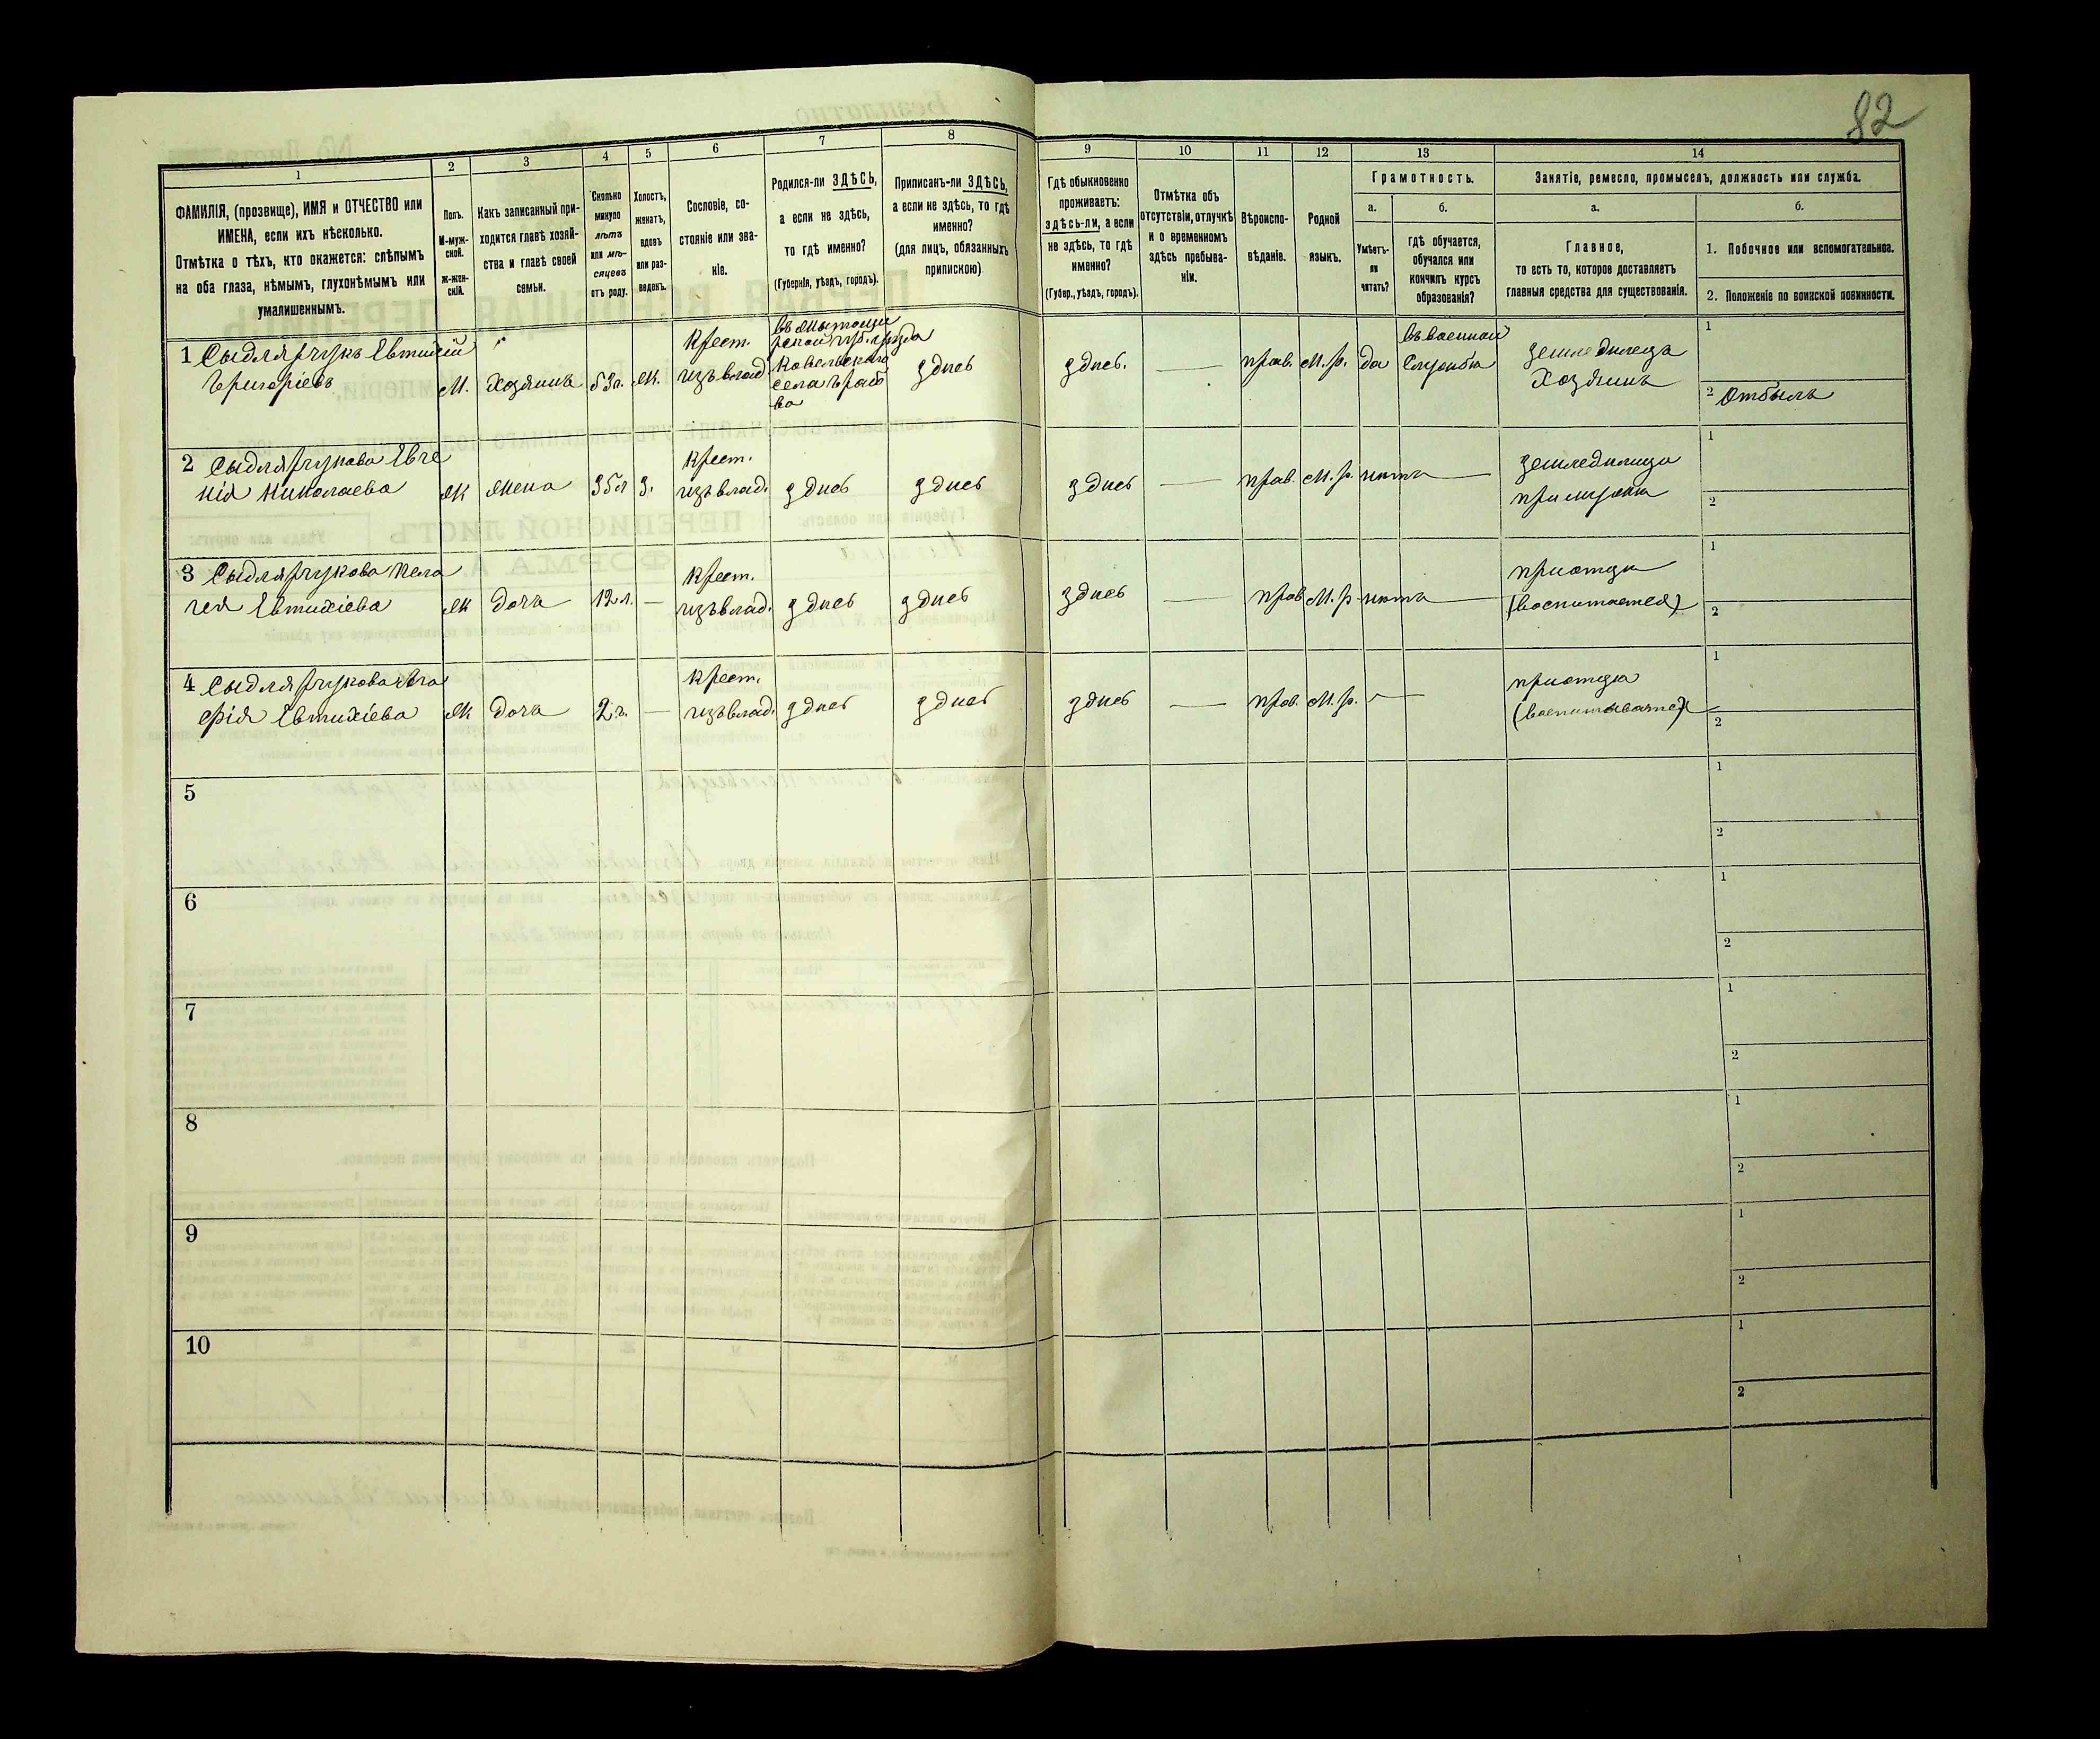 82
1
2
3
4
5
6
7
8
9
10
11
12
13
14
ФАМИЛІЯ, (прозвище), ИМЯ и ОТЧЕСТВО или
ИМЕНА, если ихъ нѣсколько.
Отмѣтка о тѣхъ, кто окажется: слѣпымъ
на оба глаза, нѣмымъ, глухонѣмымъ или
умалишеннымъ.
Полъ.
М-муж-
ской.
Ж-жен-
скій.
Какъ записанный при-
ходится главѣ хозяй-
ства и главѣ своей
семьи.
Сколько
минуло
лѣтъ
или мѣ-
сяцевъ
отъ роду.
Холостъ,
женатъ,
вдовъ
или раз-
веденъ.
Сословіе, со-
стояніе или зва-
ніе.
Родился-ли ЗДѢСЬ,
а если не здѣсь,
то гдѣ именно?
(Губернія, уѣздъ, городъ).
Приписанъ-ли ЗДѢСЬ,
а если не здѣсь, то гдѣ
именно?
(для лицъ, обязанныхъ
припискою)
Гдѣ обыкновенно
проживаетъ:
здѣсь-ли, а если
не здѣсь, то гдѣ
именно?
(Губер., уѣздъ, городъ).
Отмѣтка объ
отсутствіи, отлучкѣ
и о временномъ
здѣсь пребыва-
ніи.
Вѣроиспо-
вѣданіе.
Родной
языкъ.
Грамотность.
а.
Умѣетъ-
ли
читать?
б.
гдѣ обучается,
обучался или
кончилъ курсъ
образованія?
Занятіе, ремесло, промыселъ, должность или служба.
а.
Главное,
то есть то, которое доставляетъ
главныя средства для существованія.
б.
1. Побочное или вспомогательное.
2. Положеніе по воинской повинности.
1 Сыдлярчукъ Евтихій
Григоріевъ
М.
Хозяинъ
53л.
Ж.
Крест.
изъ влад
Ковельскаго
села
здѣсь
здѣсь.
—
прав.
М.р.
да
въ военной
службѣ
земледѣлецъ
Хозяинъ
1
2 Отбылъ
2 Сыдлярчукова Евге
нія Николаева
Ж
Жена
35л
З.
Крест.
изъ влад.
здѣсь
здѣсь
здѣсь
—
прав.
М.р.
нѣтъ
—
земледѣлица
при мужѣ
1
2
3 Сыдлярчукова Пела
гея Евтихіева
Ж
Дочь
12л.
—
Крест.
изъ влад.
здѣсь
здѣсь
здѣсь
—
прав
М.р
нѣтъ
—
при отцѣ
1
2
4 Сыдлярчукова Ага
фія Евтихіева
Ж
Дочь
2г.
—
Крест.
изъ влад.
здѣсь
здѣсь
здѣсь
—
прав.
М.р.
—
—
при отцѣ
1
2
5
1
2
6
1
2
7
1
2
8
1
2
9
1
2
10
1
2